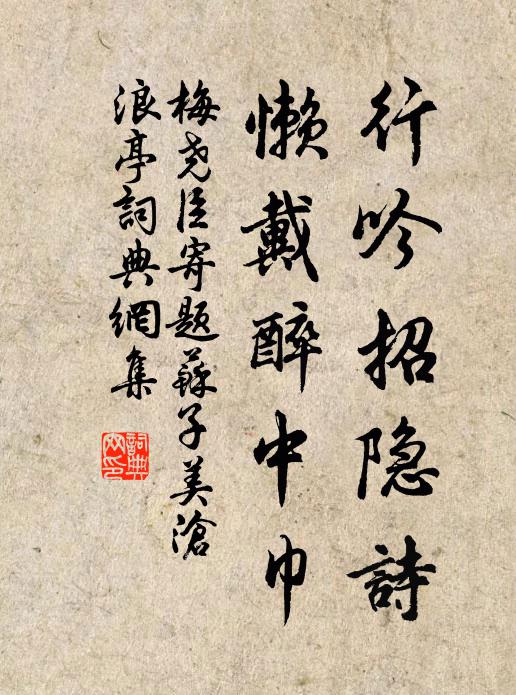 行吟招隐詩
懒戴醉中巾
梅尧臣寄题蘇子美滄
浪亭詞典網集
詞典
网印